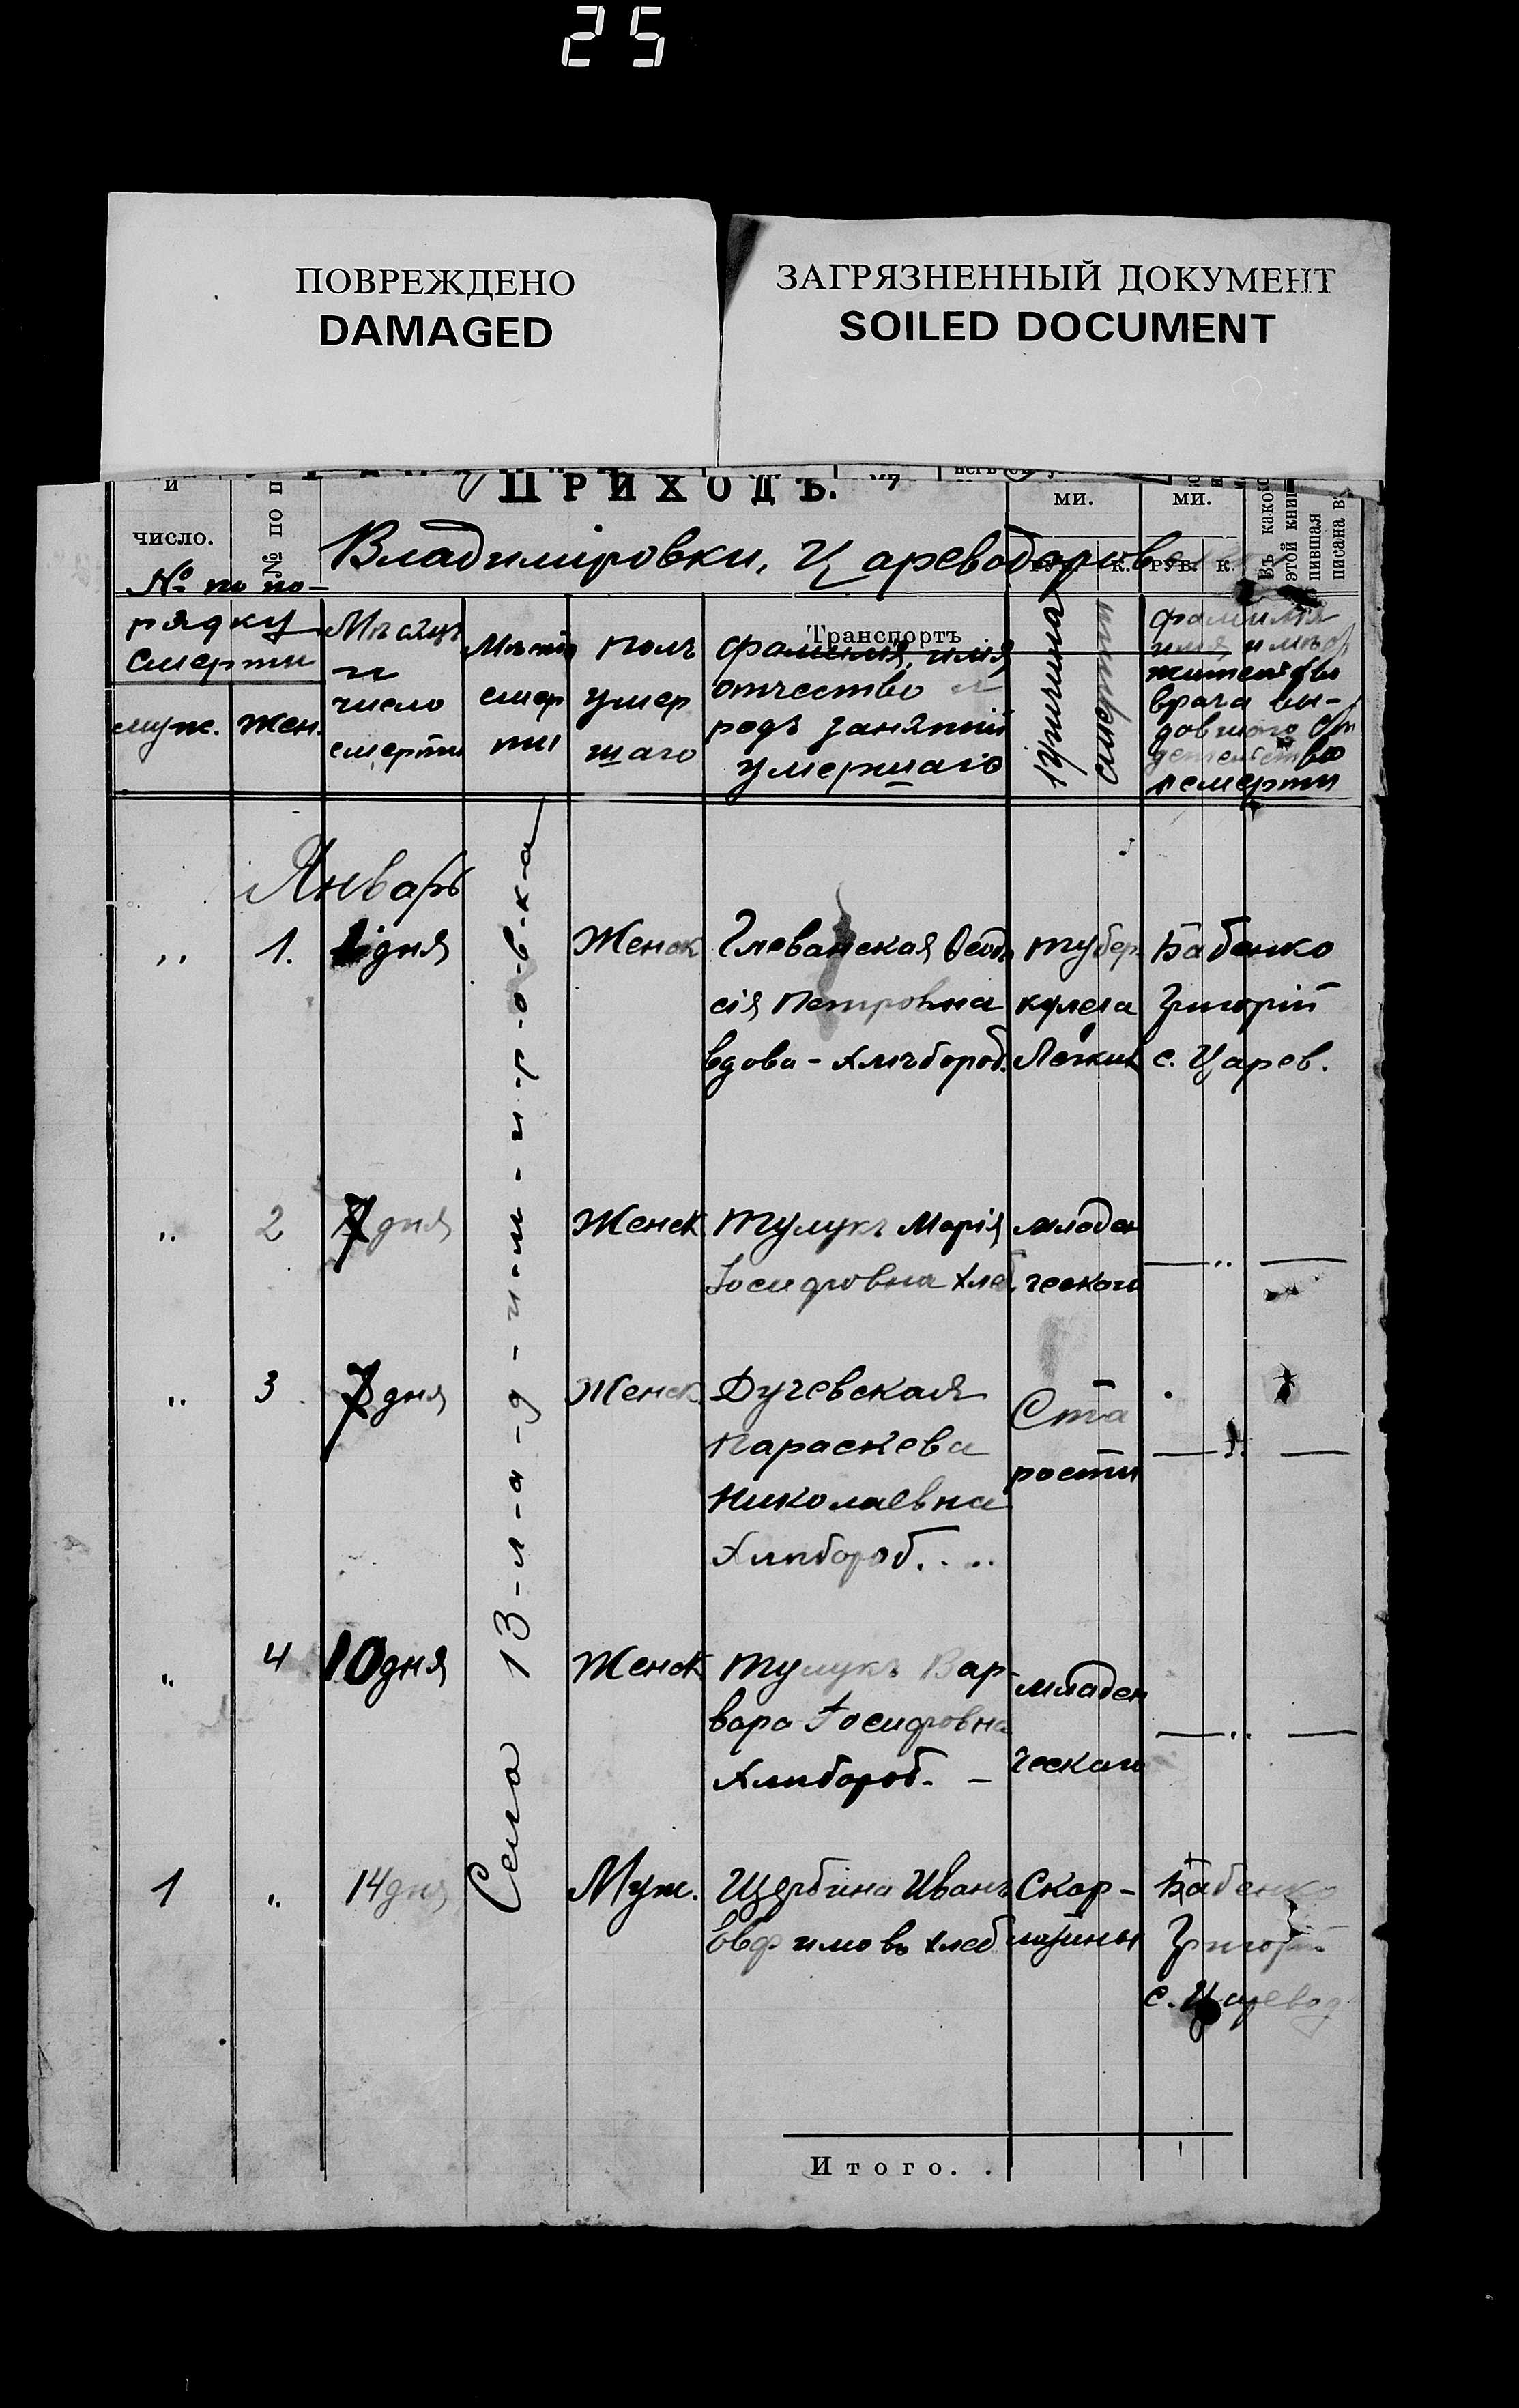 25
ПОВРЕЖДЕНО
DAMAGED
ЗАГРЯЗНЕННЫЙ ДОКУМЕНТ
SOILED DOCUMENT
ПРИХОДЪ.
и
число.
№ по п
ми.
ми.
Въ какой
этой книг
пившая
писана въ
Владиміровки, Цареводаровк
РУБ. К. РУБ. К.
№ по по-
рядку
смерти
муж. жен.
Мѣсяцъ
и
число
смерти
Мѣсто
смер
ти
полъ
умер
шаго
Транспортъ
фамилія, имя
отчество и
родъ занятій
умершаго
Причина
смерти
фамилія
имя и
жительство
врача вы-
довшаго
смерти
Январь
Село В-л-а-д-и-м-и-р-о-в-к-а
,, 1. 1 дня Женск Глеванская Ѳеодо
сія Петровна
вдова - Хлѣбороб.
тубер
кулеза
Легкихъ
Бабенко
Григорій
с. Царев.
,, 2 7 дня Женск Тулукъ Марія
Іосифовна Хлеб.
младен
ческой
— ,, —
,, 3 7 дня Женск. Дучевская
Параскева
Николаевна
Хлибороб. . ..
Ста
рости
— ,, —
,, 4 10 дня Женск. Тулукъ Вар-
вара Іосифовна
Хлибороб. -
младен
ческаго
— ,, —
1 ,, 14 дня Муж. Щербина Иванъ
Евфимовъ хлеб
Скар-
латины
Бабенко
Григорій
с. Царевод
Итого. .